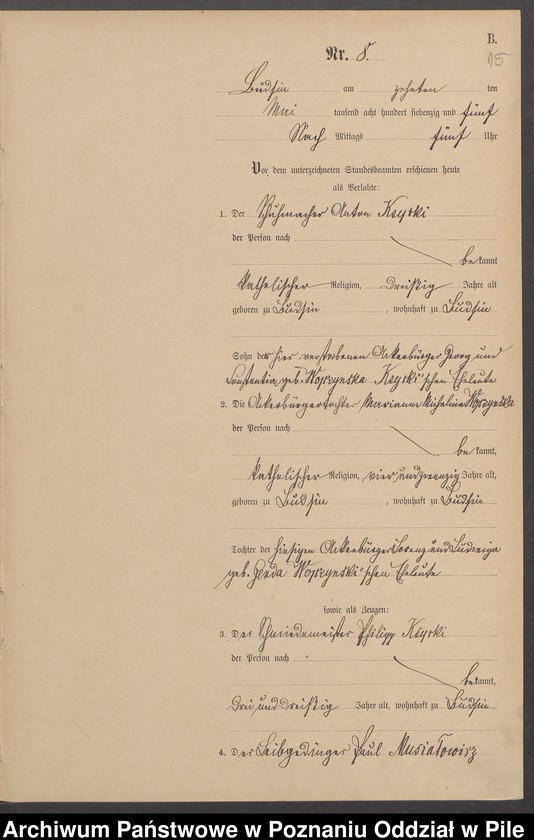 B.
15
Nr. 8.
Budsin am zehnten ten
Mai tausend acht hundert siebenzig und fünf
Nach Mittags fünf Uhr
Vor dem unterzeichneten Standesbeamten erschienen heute
als Verlobte:
1. Der Schuhmacher Anton Ksycki
der Person nach
bekannt
katholischer Religion, dreißig Jahre alt
geboren zu Budsin, wohnhaft zu Budsin
Sohn der hier verstorbenen Ackerbürger Georg und
Constantia geb. Ksycki'schen Eheleute
2. Die Ackerbürgertochter Marianna Michalina
der Person nach
bekannt,
katholischer Religion, vier und zwanzig Jahre alt,
geboren zu Budsin, wohnhaft zu Budsin
Tochter der hiesigen Ackerbürger Lorenz und Ludwiga
geb. 'schen Eheleute
sowie als Zeugen:
3. Der Schmiedemeister Philipp Ksycki
der Person nach
bekannt,
drei und dreißig Jahre alt, wohnhaft zu Budsin
4. Der Leibgedinger Paul Musiałowicz
Archiwum Państwowe w Poznaniu Oddział w Pile